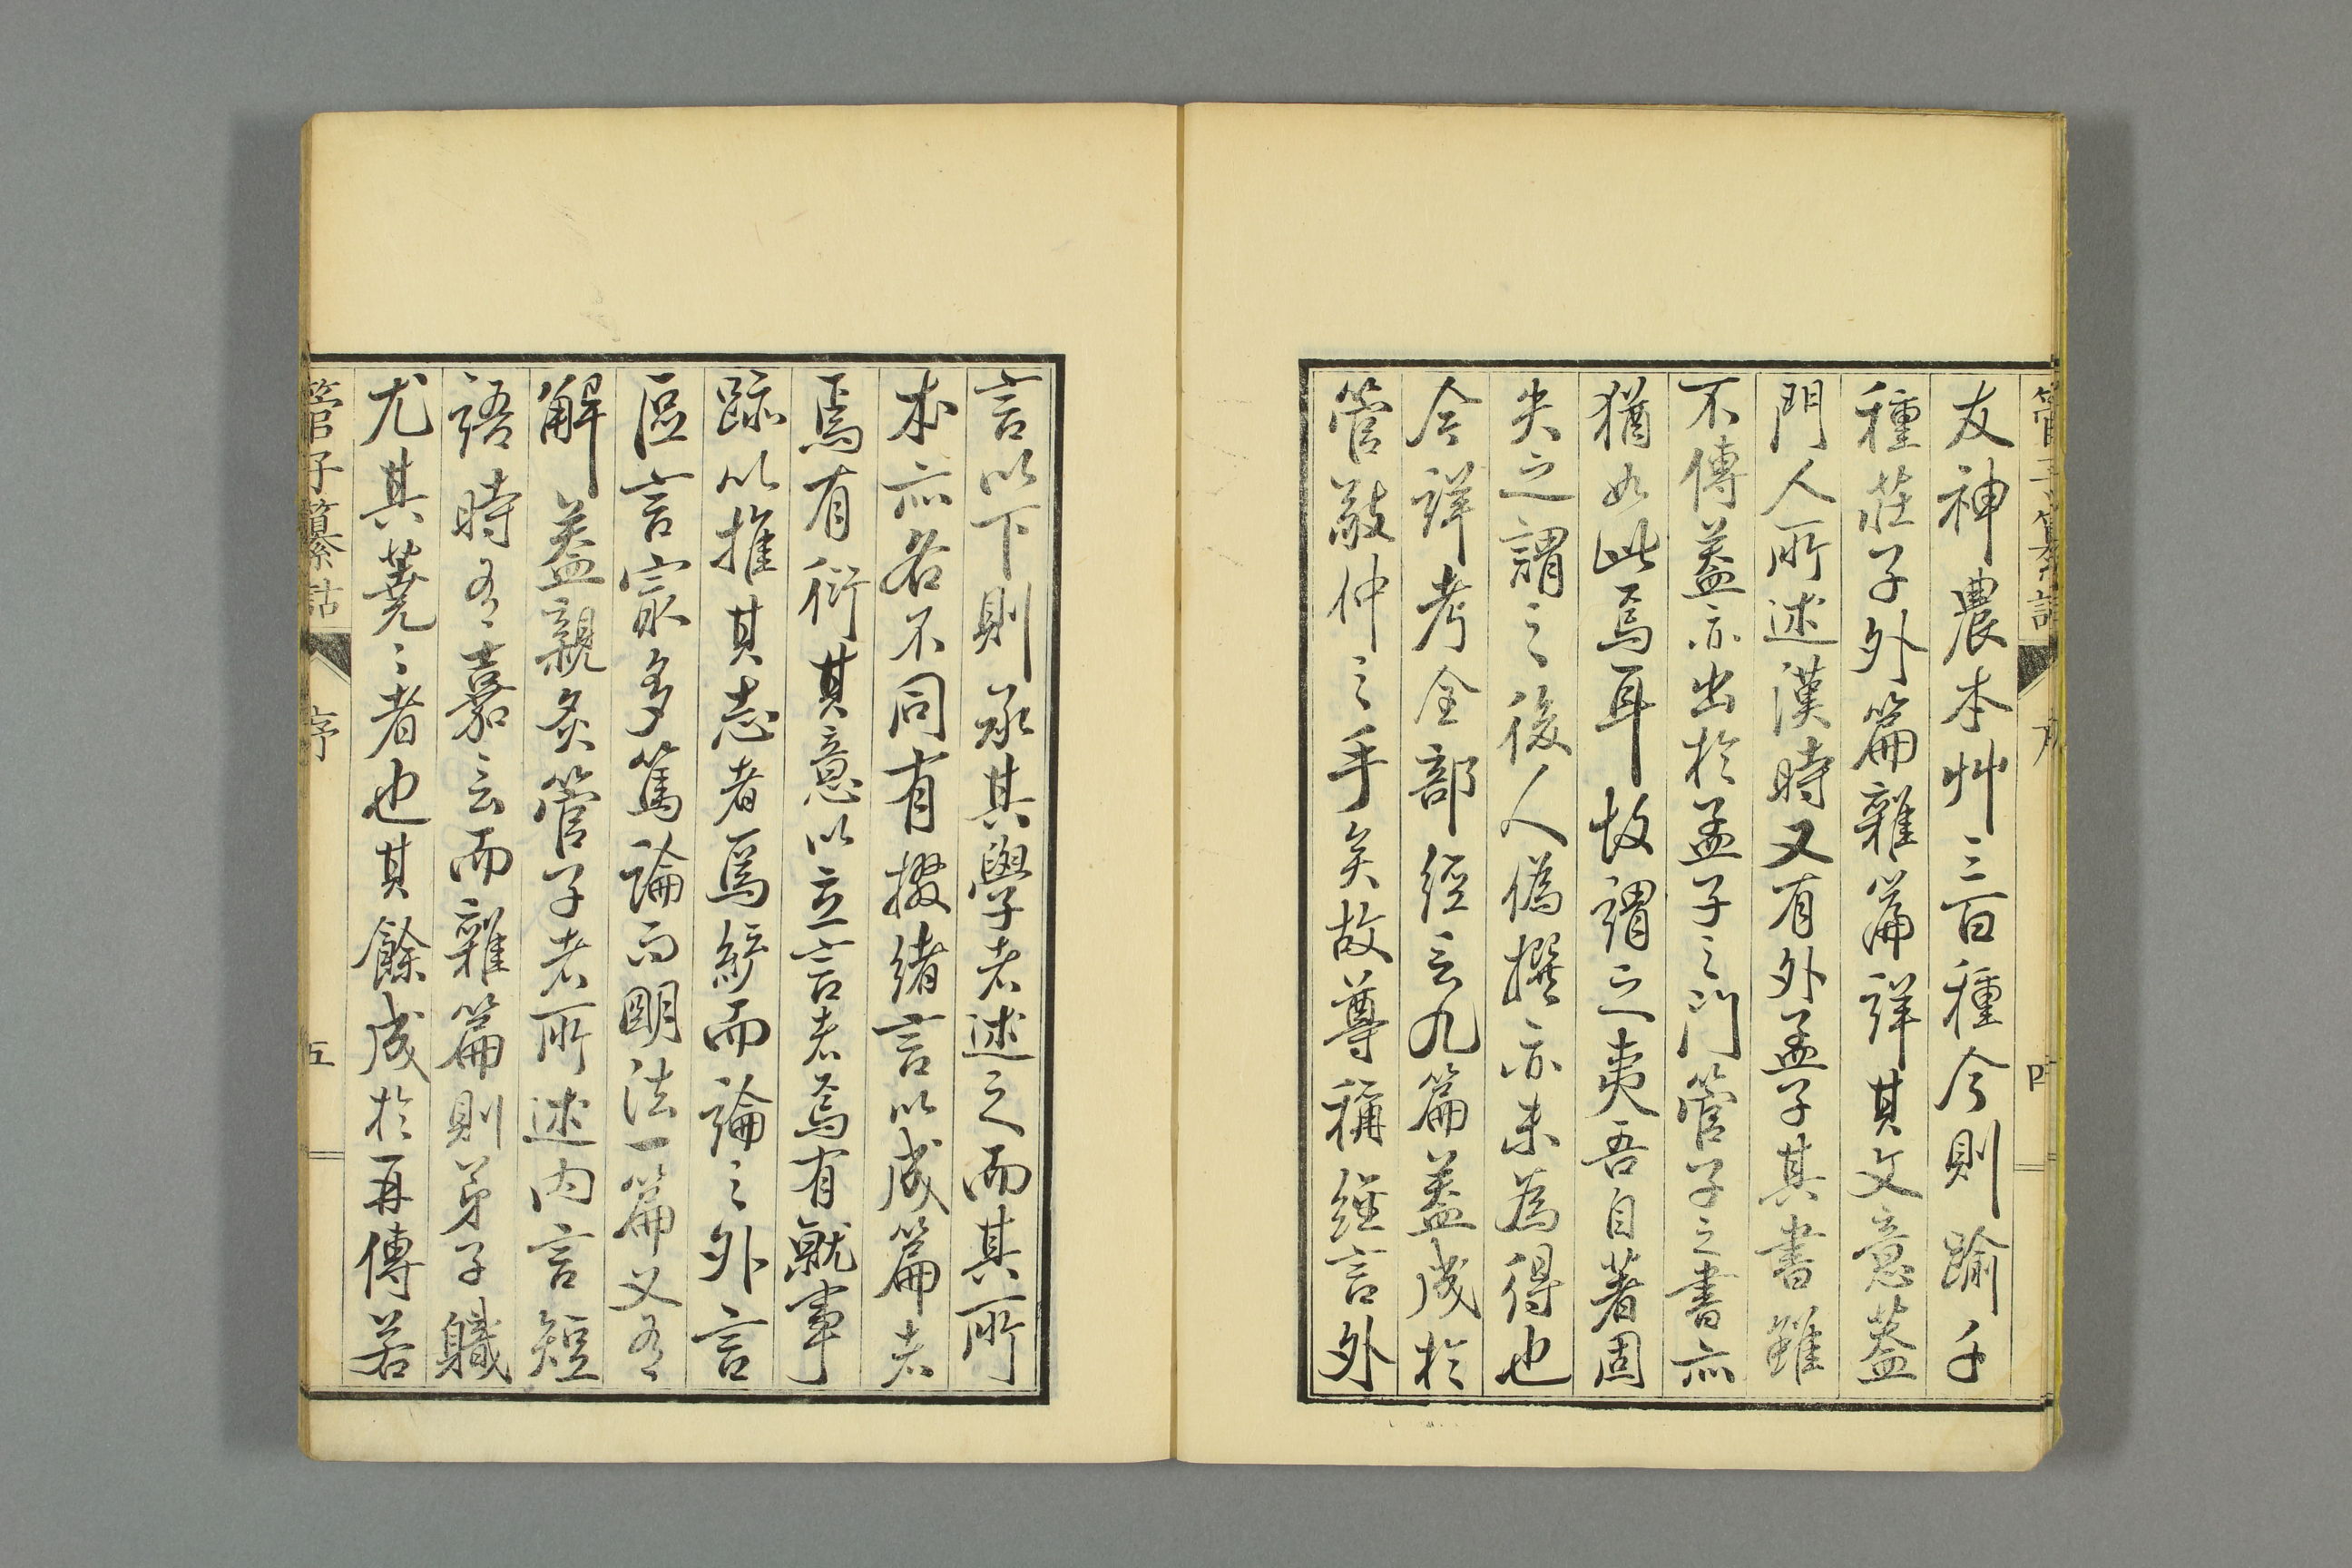 管子纂詁 序 四
友神農本艸三百種今則踰千
種莊子外篇雜篇詳其文意蓋
門人所述漢時又有外孟子其書雖
不傳蓋亦出於孟子之門管子之書亦
猶如此焉耳故謂之夷吾自著固
失之謂之後人偽撰亦未為得也
今詳考全部經言九篇蓋成於
管敬仲之手矣故尊稱經言外
言以下則承其學者述之而其所
本亦各不同有掇緒言以成篇者
焉有衍其意以立言者焉有就事
跡以推其志者焉綜而論之外言
區言寂多篤論而明法一篇又有
解蓋親炙管子者所述內言短
語時有嘉言而雜篇則弟子職
尤其莌〻者也其餘成於再傳若
管子纂詁 序 五